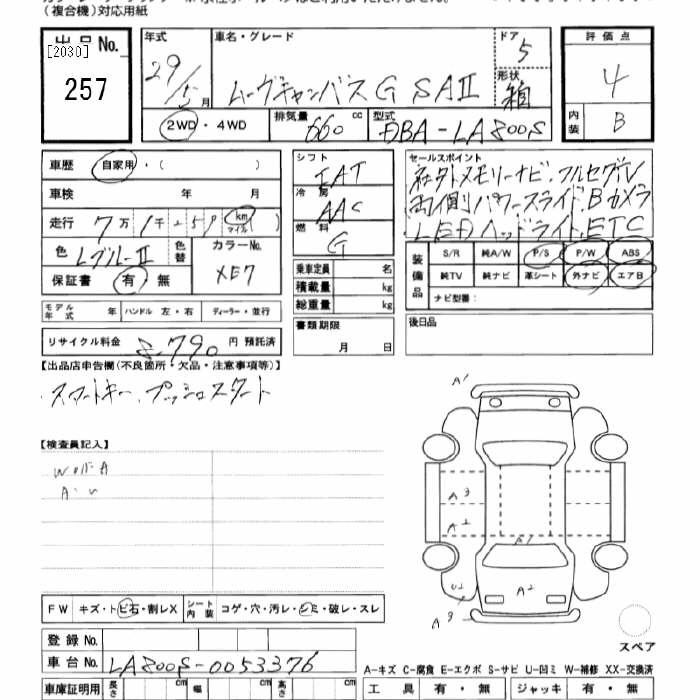 (複合機)対応用紙
出品No.
[2030]
257
年式
29/5 月
車名・グレード
ムーヴキャンバス G SAⅡ
ドア
5
形状
箱
評価点
4
内装
B
2WD・4WD
排気量
660 cc
型式
DBA-LA800S
車歴 自家用・( )
車検 年 月
走行 7万1千259 km マイル ( )
色 Lブルー-Ⅱ 色替
カラーNo.
XE7
保証書 有・無
モデル年式 ハンドル 左・右 ディーラー・並行
リサイクル料金 8,790 円 預託済
シフト
FAT
冷房
AAC
燃料
G
乗車定員 名
積載量 kg
総重量 kg
書類期限
月 日
セールスポイント
社外メモリーナビ、フルセグTV
両側パワースライド、Bカメラ
LEDヘッドライト、ETC
装備品
S/R 純A/W P/S P/W ABS
純TV 純ナビ 革シート 外ナビ エアB
ナビ型番:
後日品
【出品店申告欄(不良箇所・欠品・注意事項等)】
・スマートキー、プッシュスタート
【検査員記入】
A・U
A1
A3
A2
A1
U2
A2
A3
スペア
FW キズ・トビ石・割レX
シート内装 コゲ・穴・汚レ・シミ・破レ・スレ
登録No.
車台No. LA800S-0053376
A-キズ C-腐食 E-エクボ S-サビ U-凹ミ W-補修 XX-交換済
車庫証明用 長さ cm 幅 cm 高さ cm
工具 有・無 ジャッキ 有・無